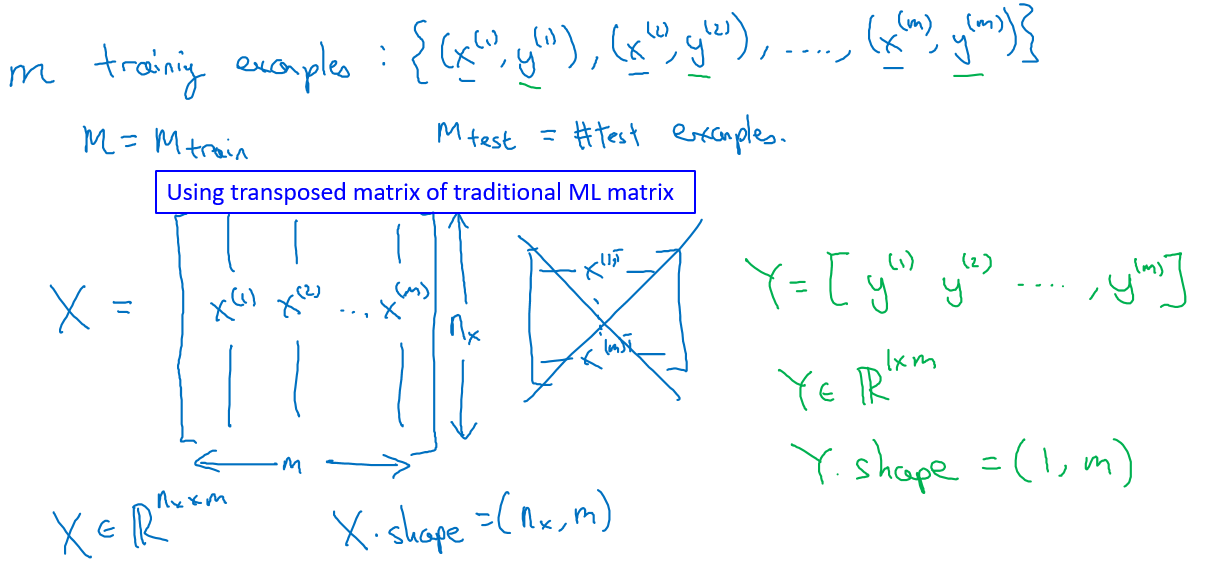 m training examples : {(x^(1), y^(1)), (x^(2), y^(2)), ...., (x^(m), y^(m))}
M = M_train
M_test = #test examples.
Using transposed matrix of traditional ML matrix
X = [x^(1) x^(2) ... x^(m)]
n_x
m
x^(1)T
x^(m)T
Y = [y^(1) y^(2) ...., y^(m)]
Y ∈ ℝ^1×m
Y.shape = (1, m)
X ∈ ℝ^n_x×m
X.shape = (n_x, m)